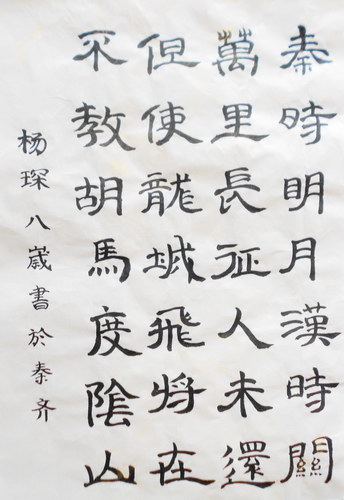 秦時明月漢時關
萬里長征人未還
但使龍城飛将在
不教胡馬度陰山
杨琛八歲書於秦齐